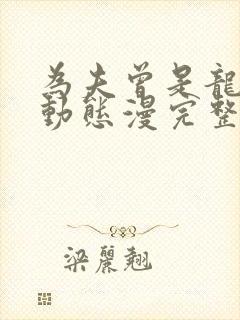 為夫曾是龍
動態漫完整
梁麗翹